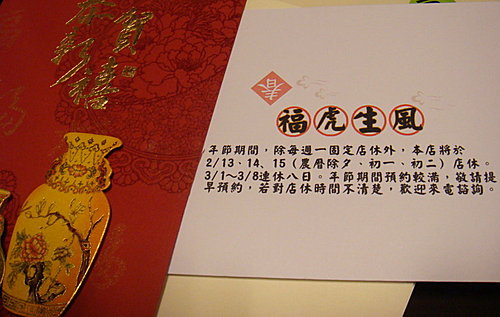 恭賀
新禧
春
福虎生風
年節期間，除每週一固定店休外，本店將於
2/13、14、15（農曆除夕、初一、初二）店休。
3/1～3/8連休八日。年節期間預約較滿，敬請提
早預約，若對店休時間不清楚，歡迎來電諮詢。